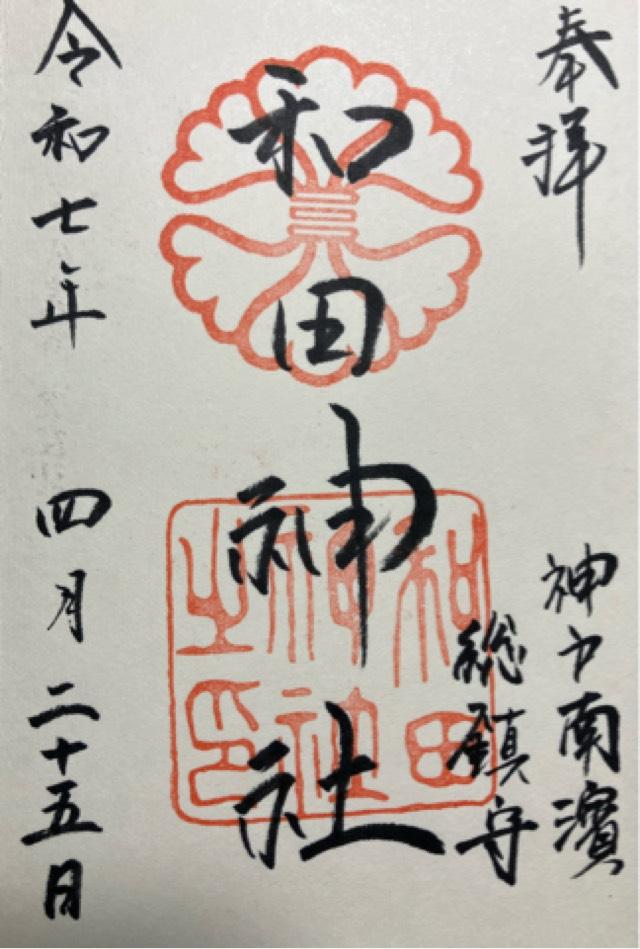 奉拝
神戸南濱
総鎮守
和田神社
和田神社之印
令和七年 四月二十五日